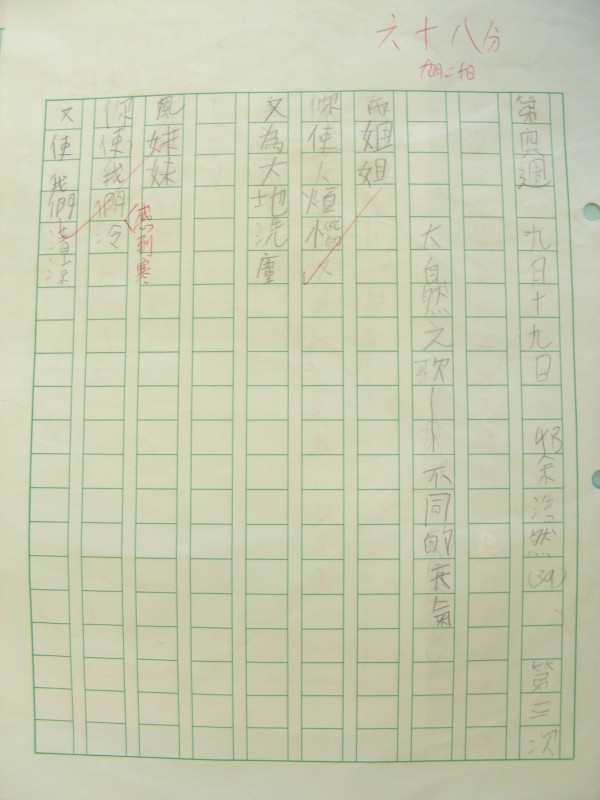 六十八分
九月二十日
第四週 九月十九日 4B余浩然(39) 第三次
大自然之歌——不同的天氣
雨姐姐
你使人煩惱
又為大地洗塵
風妹妹
你使我們冷
感到寒
又使我們清涼